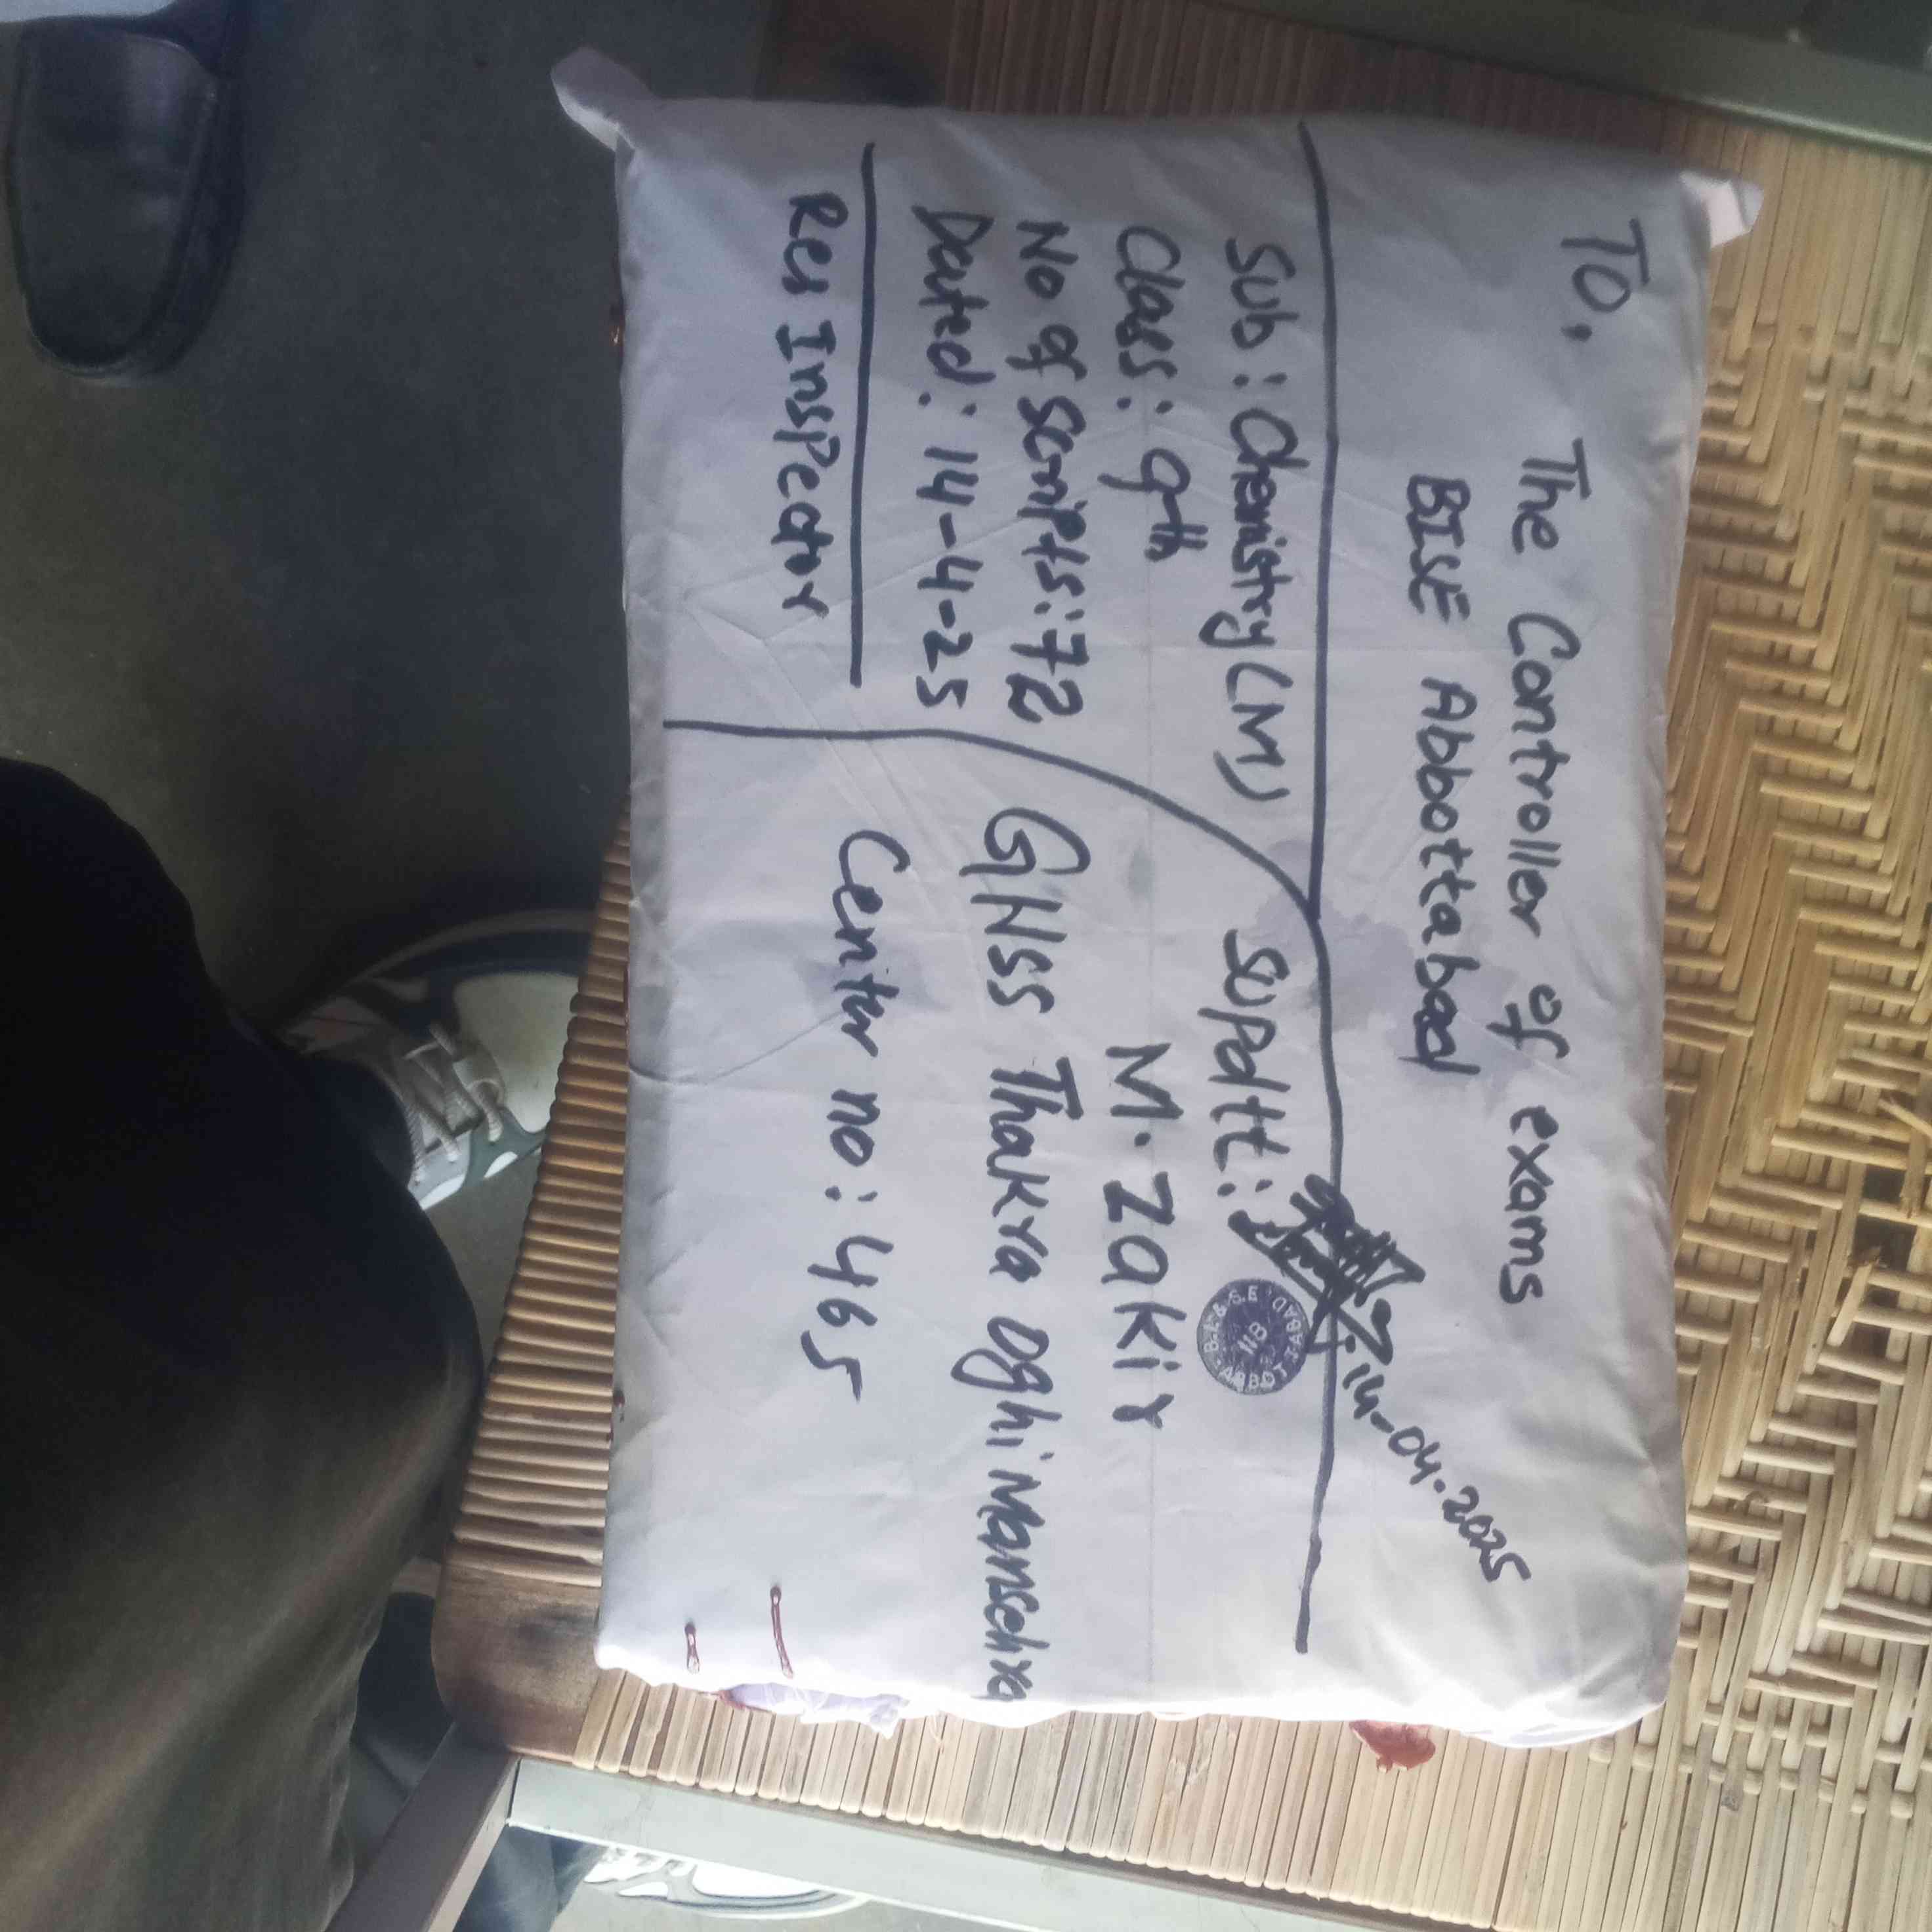 To,
The Controller of exams
BISE Abbottabad
Sub: Chemistry (M)
Class: 9th
No of Scripts: 72
Dated: 14-4-25
Res Inspector
Supdtt:
14-04-2025
B.I.&S.E ABBOTTABAD
118
M. Zakir
GHSS Thakra Oghi Mansehra
Center no: 465